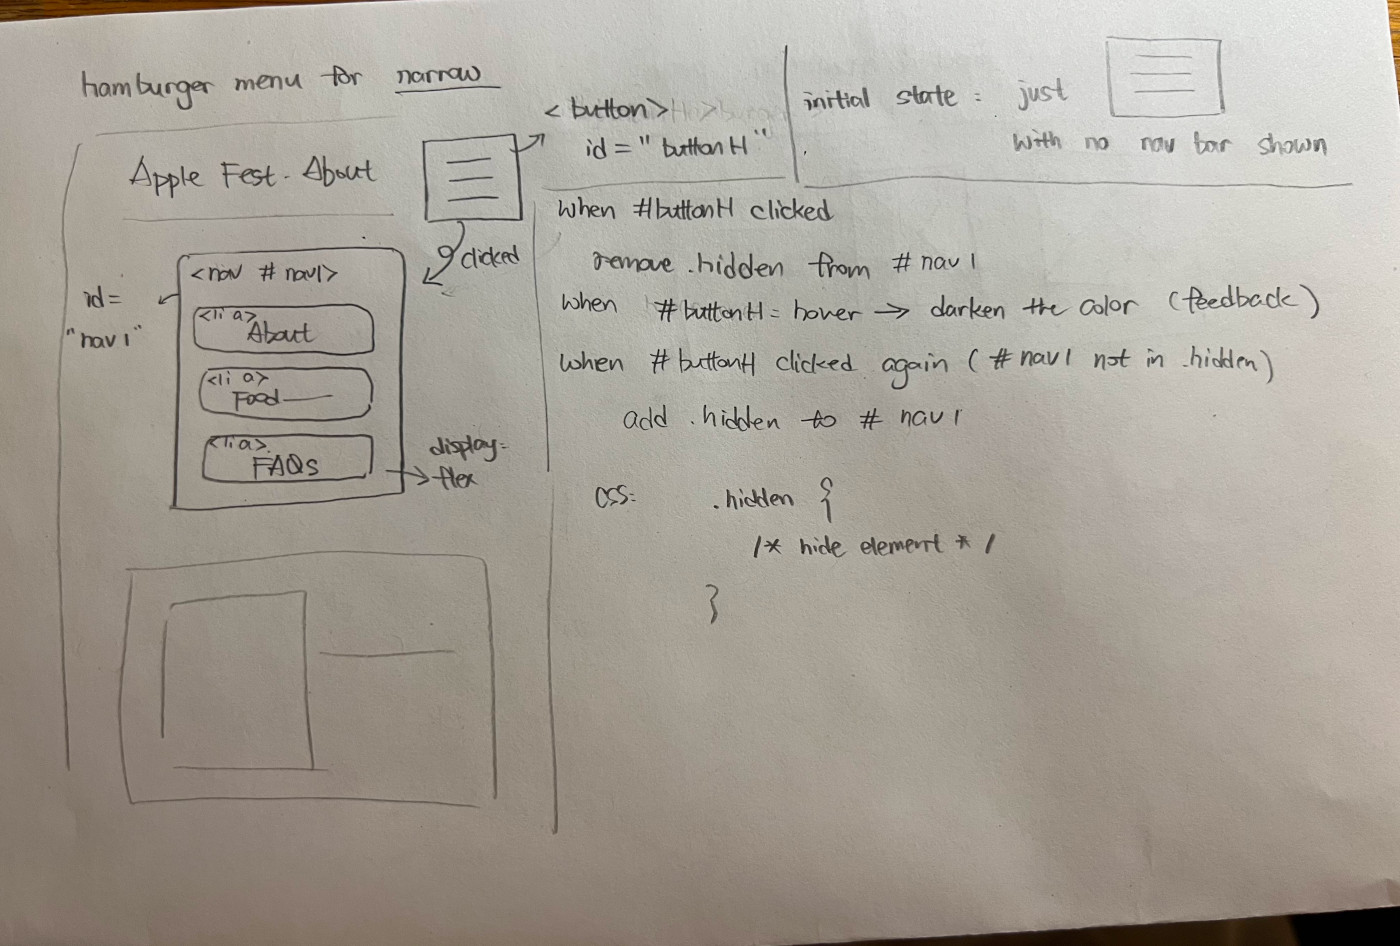 hamburger menu for narrow
Apple Fest. About
<button>
id = "buttonH"
clicked
id =
"nav1"
<nav #nav1>
<li a>
About
<li a>
Food
<li a>
FAQs
display:
flex
initial state : just
with no nav bar shown
when #buttonH clicked
remove .hidden from #nav1
when #buttonH = hover → darken the color (feedback)
when #buttonH clicked again (#nav1 not in .hidden)
add .hidden to #nav1
CSS: .hidden {
/* hide element */
}